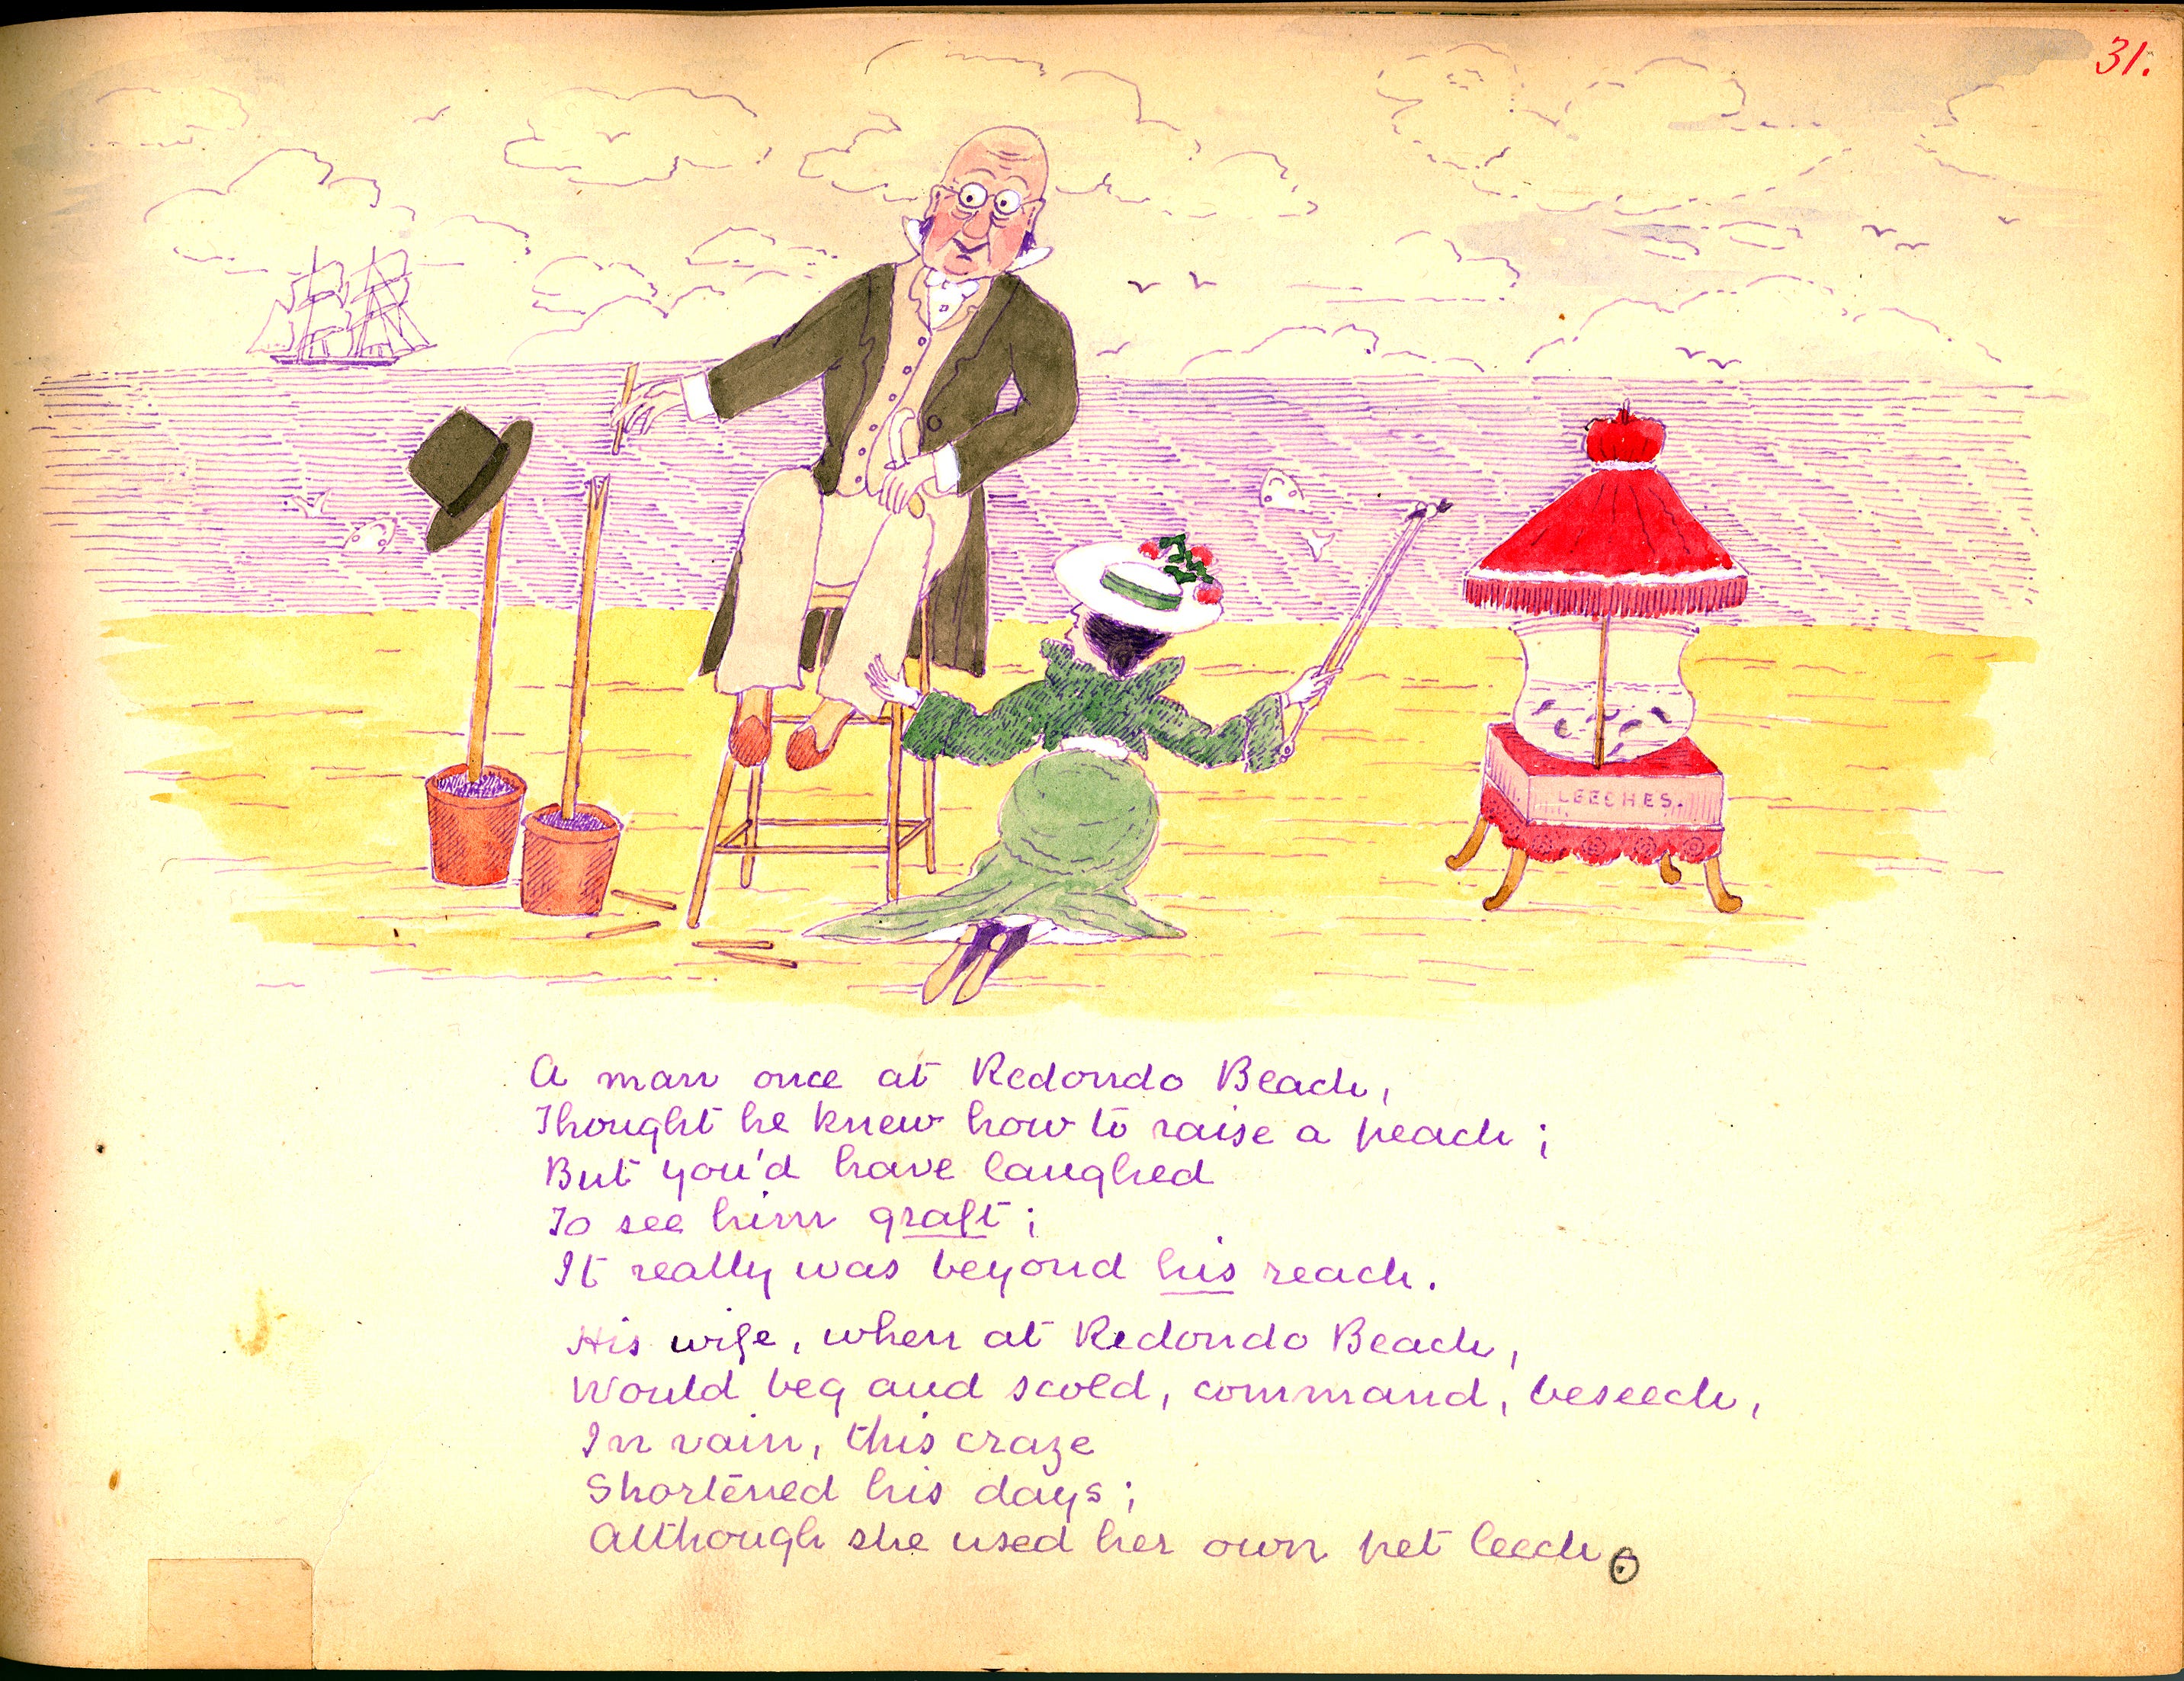 31.
LEECHES.
A man once at Redondo Beach,
Thought he knew how to raise a peach;
But you'd have laughed
To see him graft;
It really was beyond his reach.
His wife, when at Redondo Beach,
Would beg and scold, command, beseech,
In vain, this craze
Shortened his days;
Although she used her own pet leech.